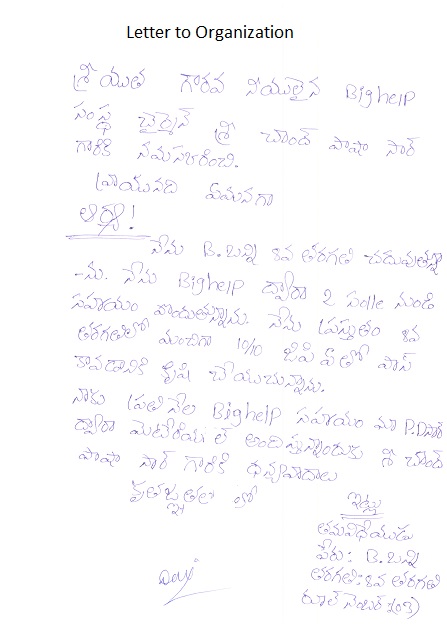 Letter to Organization
శ్రీయుత గౌరవ నీయులైన Bighelp
సంస్థ చైర్మెన్ శ్రీ చాంద్ పాషా సార్
గారికి నమస్కరించి.
వ్రాయునది ఏమనగా
ఆర్యా!
నేను B.బన్ని 8వ తరగతి చదువుతున్నా
-ను. నేను Bighelp ద్వారా 2 సంllల నుండి
సహాయం పొందుతున్నాను. నేను ప్రస్తుతం 8వ
తరగతిలో మందిగా 10/10 జిపి వీ తో పాస్
కావడానికి కృషి చేయుచున్నాను.
నాకు ప్రతి నెల Bighelp సహాయం మా P.D సార్
ద్వారా మెటీరియల్ అందిస్తున్నందుకు శ్రీ చాంద్
పాషా సార్ గారికి ధన్యవాదాలు
కృతజ్ఞతలతో
ఇట్లు
తమవిధేయుడు
పేరు: B.బన్ని
తరగతి: 8వ తరగతి
రూల్ నెంబర్:(03)